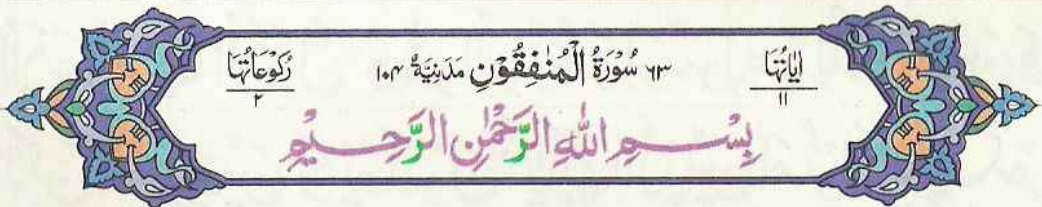 اٰيَاتُهَا ١١ ٦٣ سُوْرَةُ الْمُنٰفِقُوْنَ مَدَنِيَّةٌ ١٠٤ رُكُوْعَاتُهَا ٢
بِسْمِ اللهِ الرَّحْمٰنِ الرَّحِيْمِ